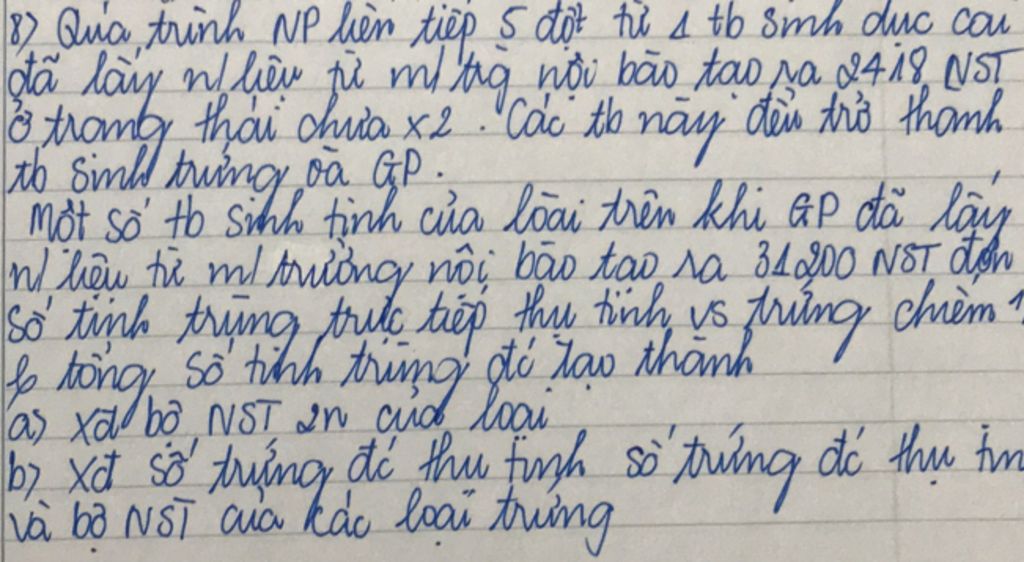 8) Quá trình NP liên tiếp 5 đợt từ 1 tb sinh dục cái
đã lấy n/liệu từ m/trg nội bào tạo ra 2418 NST
ở trạng thái chưa x2. Các tb này đều trở thành
tb sinh trứng và GP.
Một số tb sinh tinh của loài trên khi GP đã lấy
n/liệu từ m/trường nội bào tạo ra 31200 NST đơn
số tinh trùng trực tiếp thụ tinh vs trứng chiếm
tổng số tinh trùng đc tạo thành
a) Xđ bộ NST 2n của loài
b) Xđ số trứng đc thụ tinh số trứng đc thụ tin
và bộ NST của các loại trứng